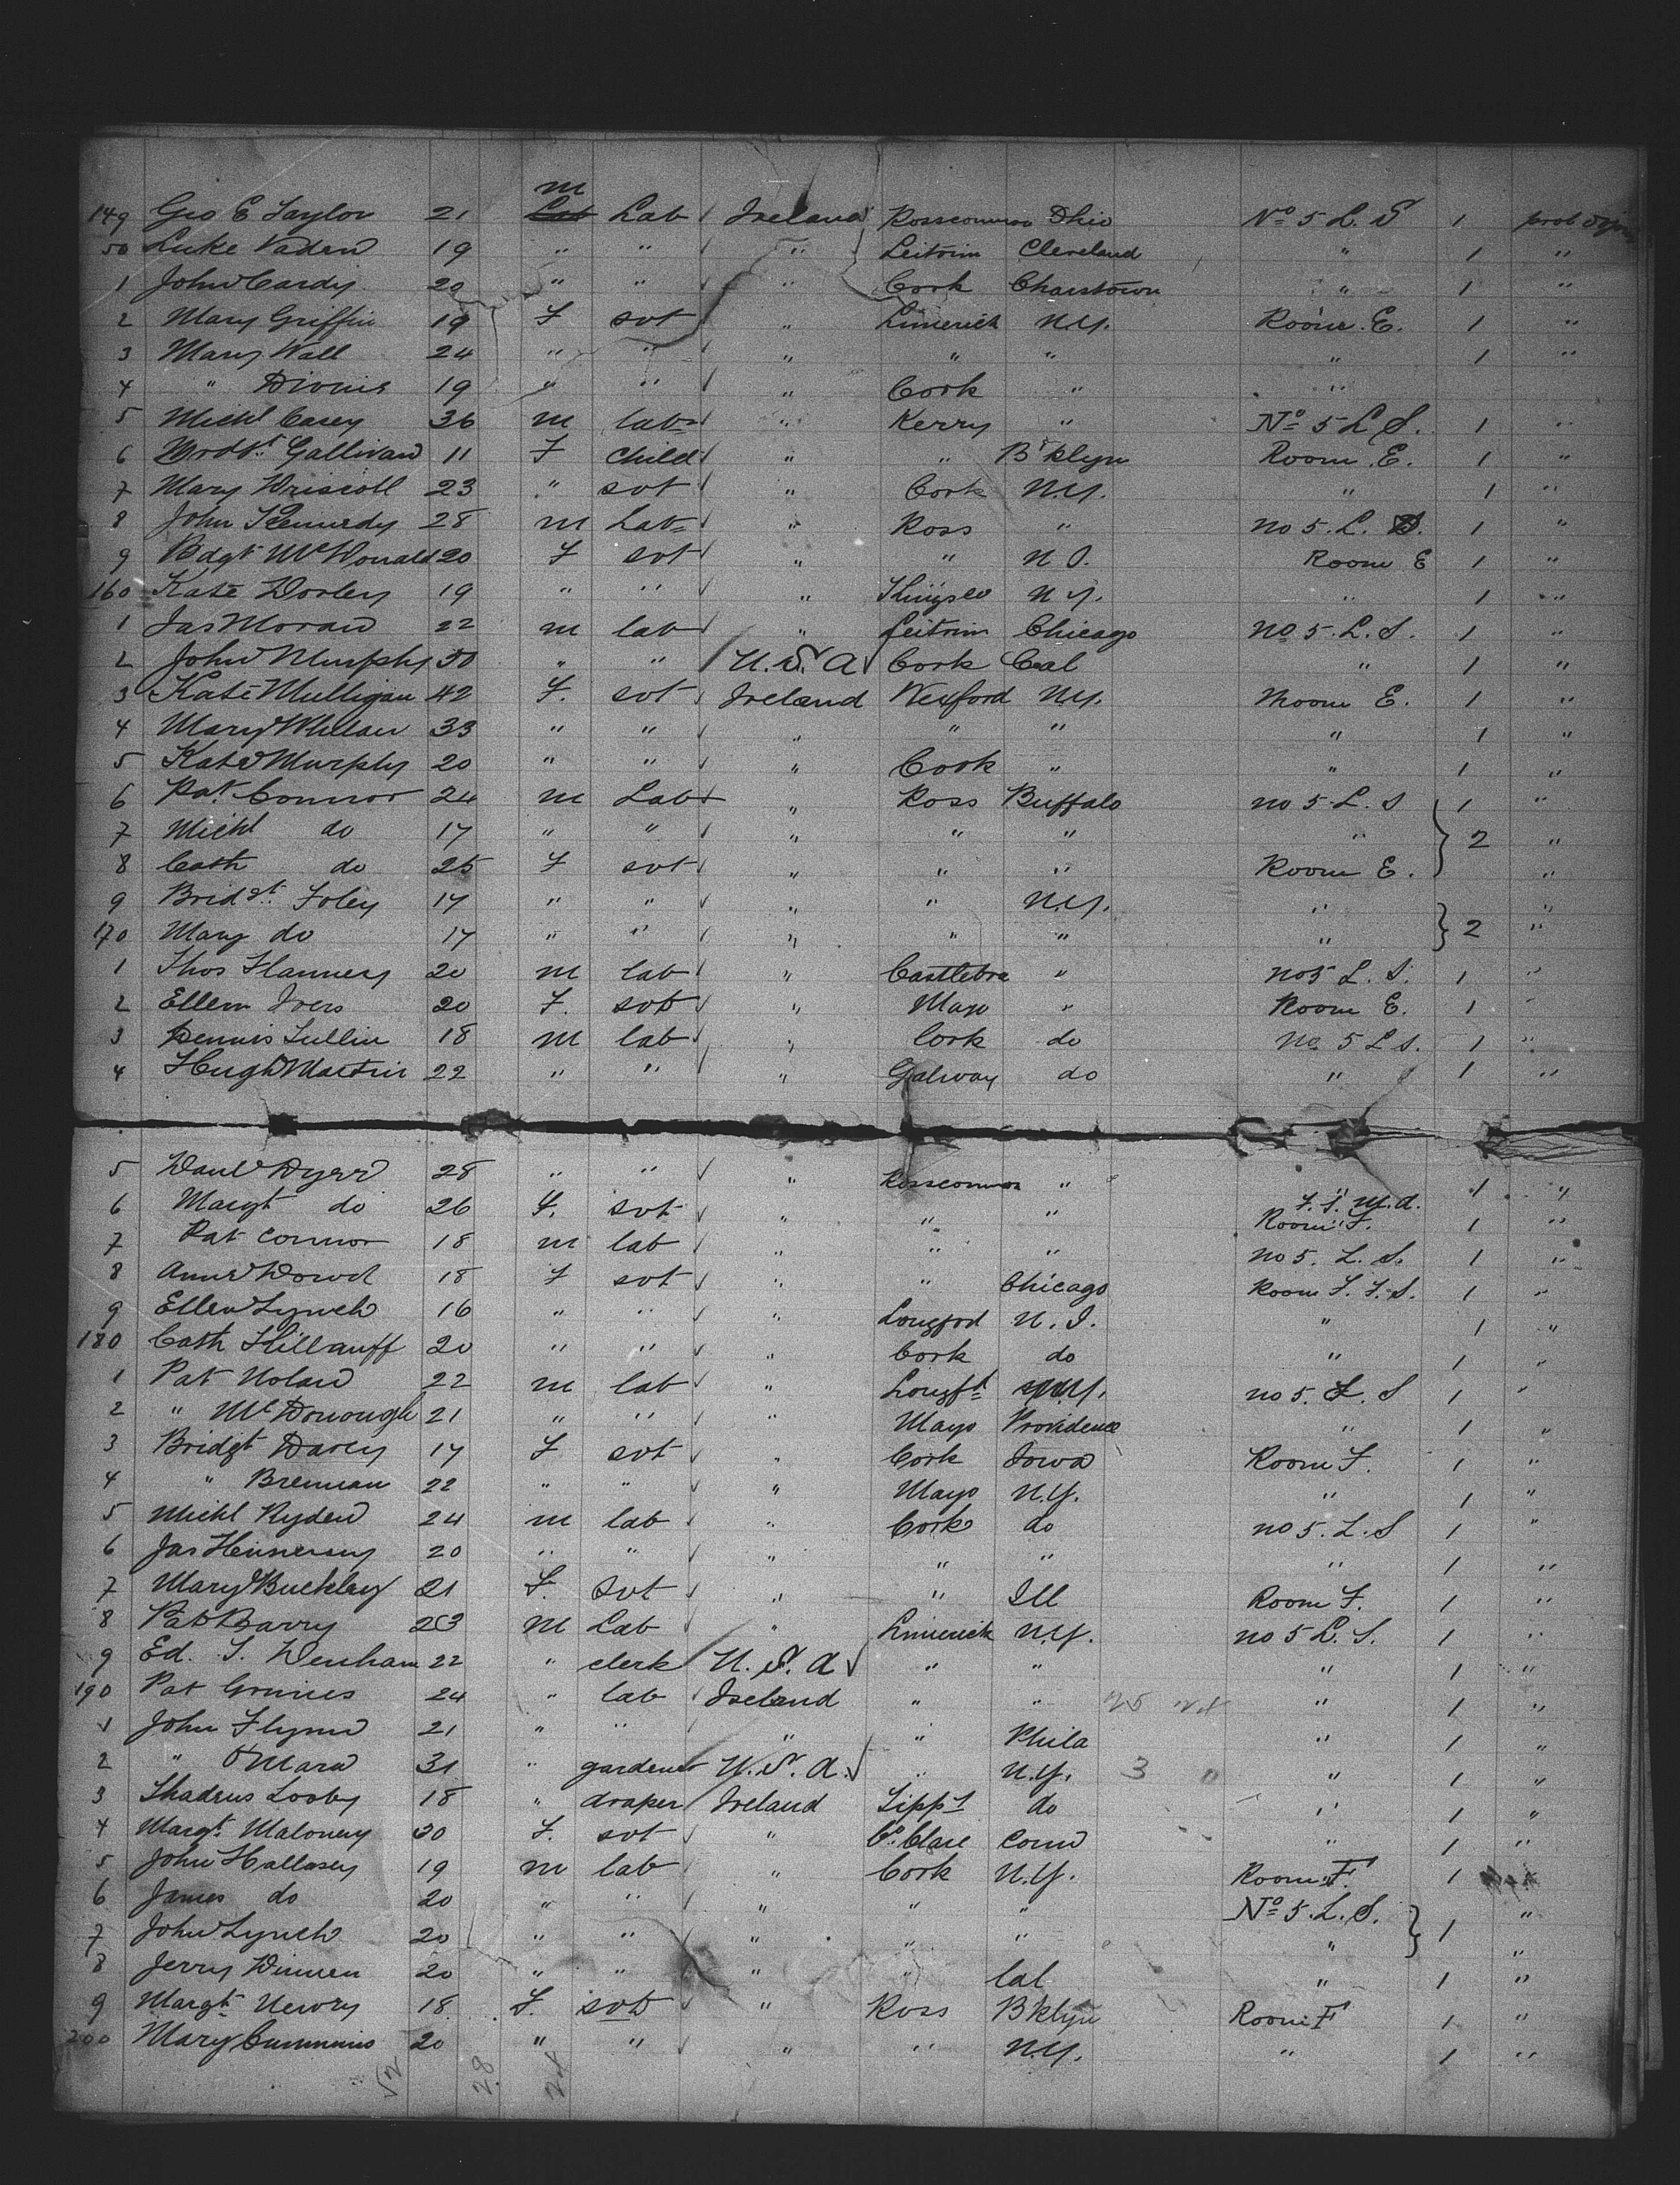 149 Geo E Taylor 21 m Lab Lab Ireland Roscommon Ohio No 5 L. S 1 prob
50 Luke Vaden 19 " " " Leitrim Cleveland " 1 "
1 John Cardy 20 " " " Cork Chastown " 1 "
2 Mary Griffin 19 F svt " Limerick N.Y. Room E. 1 "
3 Mary Wall 24 " " " " " " 1 "
4 " Divine 19 " " " Cork " " 1 "
5 Michl Casey 36 m lab " Kerry " No 5 L S. 1 "
6 Brdgt Gallivan 11 F Child " " B'klyn Room E. 1 "
7 Mary Driscoll 23 " svt " Cork N.Y. " 1 "
8 John Kennedy 28 m Lab " Ross " no 5. L. S. 1 "
9 Bdgt McDonald 20 F svt " " N J. Room E 1 "
160 Kate Dorley 19 " " " Kingsco N Y. " 1 "
1 Jas Moran 22 m lab " Leitrim Chicago no 5. L. S. 1 "
2 John Murphy 50 " " U. S. A Cork Cal " 1 "
3 Kate Mulligan 42 F. svt Ireland Wexford N.Y. Room E. 1 "
4 Mary Whelan 33 " " " " " " 1 "
5 Kate Murphy 20 " " " Cook " " 1 "
6 Pat Connor 24 m Lab " Ross Buffalo no 5 L. S 1 "
7 Michl do 17 " " " " " " 2 "
8 Cath do 25 F svt " " " Room E. "
9 Bridgt Foley 17 " " " " N.Y. " "
170 Mary do 17 " " " " " " 2 "
1 Thos Flannery 20 m lab " Castlebra " no 5 L. S. 1 "
2 Ellen Ivers 20 F. svt " Mayo " Room E. 1 "
3 Dennis Lullin 18 m lab " Cork do no 5 L s. 1 "
4 Hugh Martin 22 " " " Galway do " 1 "
5 Danl Dyer 28 " " " Roscommon " " 1 "
6 Margt do 26 F. svt " " " F. S. M. A. Room F. 1 "
7 Pat Connor 18 m lab " " " no 5. L. S. 1 "
8 Anne Dowd 18 F svt " " Chicago Room F. F. S. 1 "
9 Ellen Lynch 16 " " " Longford N. J. " 1 "
180 Cath Killauff 20 " " " Cork do " 1 "
1 Pat Nolan 22 m lab " Longfd N.Y. no 5. L. S 1 "
2 " McDonough 21 " " " Mayo Providence " 1 "
3 Bridgt Darcy 17 F svt " Cork Iowa Room F. 1 "
4 " Brennan 22 " " " Mayo N.Y. " 1 "
5 Michl Ryden 24 m lab " Cork do no 5. L. S 1 "
6 Jas Hennersey 20 " " " " " " 1 "
7 Mary Buckley 21 F. Svt " " Ill Room F. 1 "
8 Pat Barry 23 m Lab " Limerick N.Y. no 5 L. S. 1 "
9 Ed. S. Denham 22 " clerk U. S. A " " " 1 "
190 Pat Grimes 24 " lab Ireland " " 25 24 " 1 "
1 John Flynn 21 " " " " Phila " 1 "
2 " O'Mara 31 " gardener U. S. A. " N.Y. 3 0 " 1 "
3 Thadeus Looby 18 " draper Ireland Tippy do " 1 "
4 Margt Maloney 30 F. svt " Co Clare Conn " 1 "
5 John Hallasey 19 m lab " Cork N.Y. Room F. 1
6 James do 20 " " " " " No 5. L. S. 1 "
7 John Lynch 20 " " " " " " "
8 Jerry Dinneen 20 " " " " Cal " 1 "
9 Margt Newry 18 F. svt " Ross B'klyn Room F 1 "
200 Mary Cummins 20 " " " " N.Y. " 1 "
52 28 24